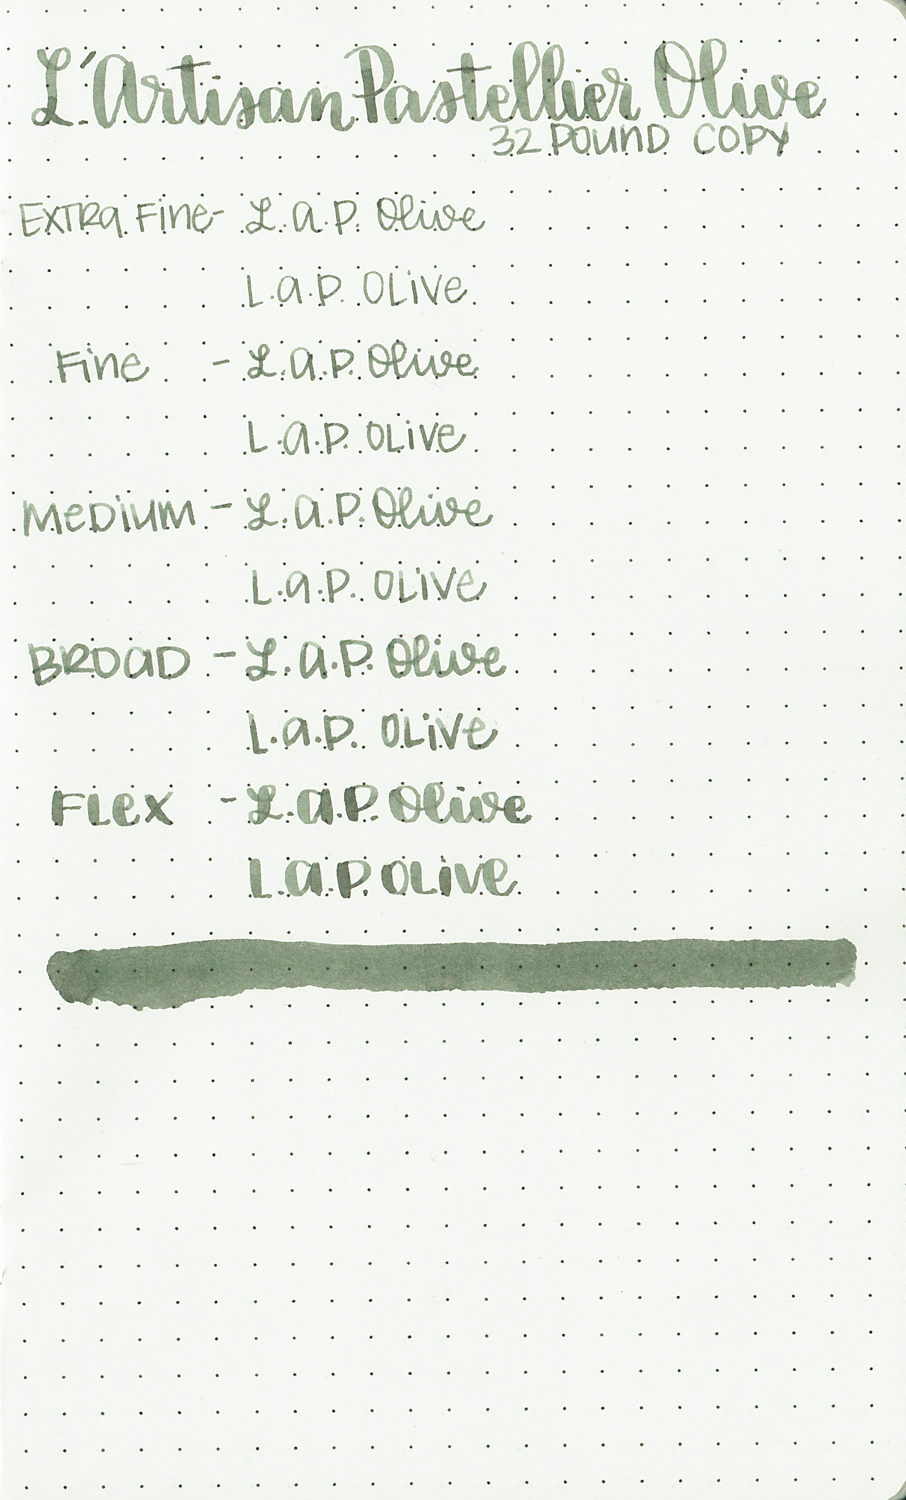 L'Artisan Pastellier Olive
32 POUND COPY
EXTRA FINE- L.A.P. Olive
L.A.P. OLIVE
FINE - L.A.P. Olive
L.A.P. OLIVE
MEDIUM - L.A.P. Olive
L.A.P. OLIVE
BROAD - L.A.P. Olive
L.A.P. OLIVE
FLEX - L.A.P. Olive
L.A.P. OLIVE